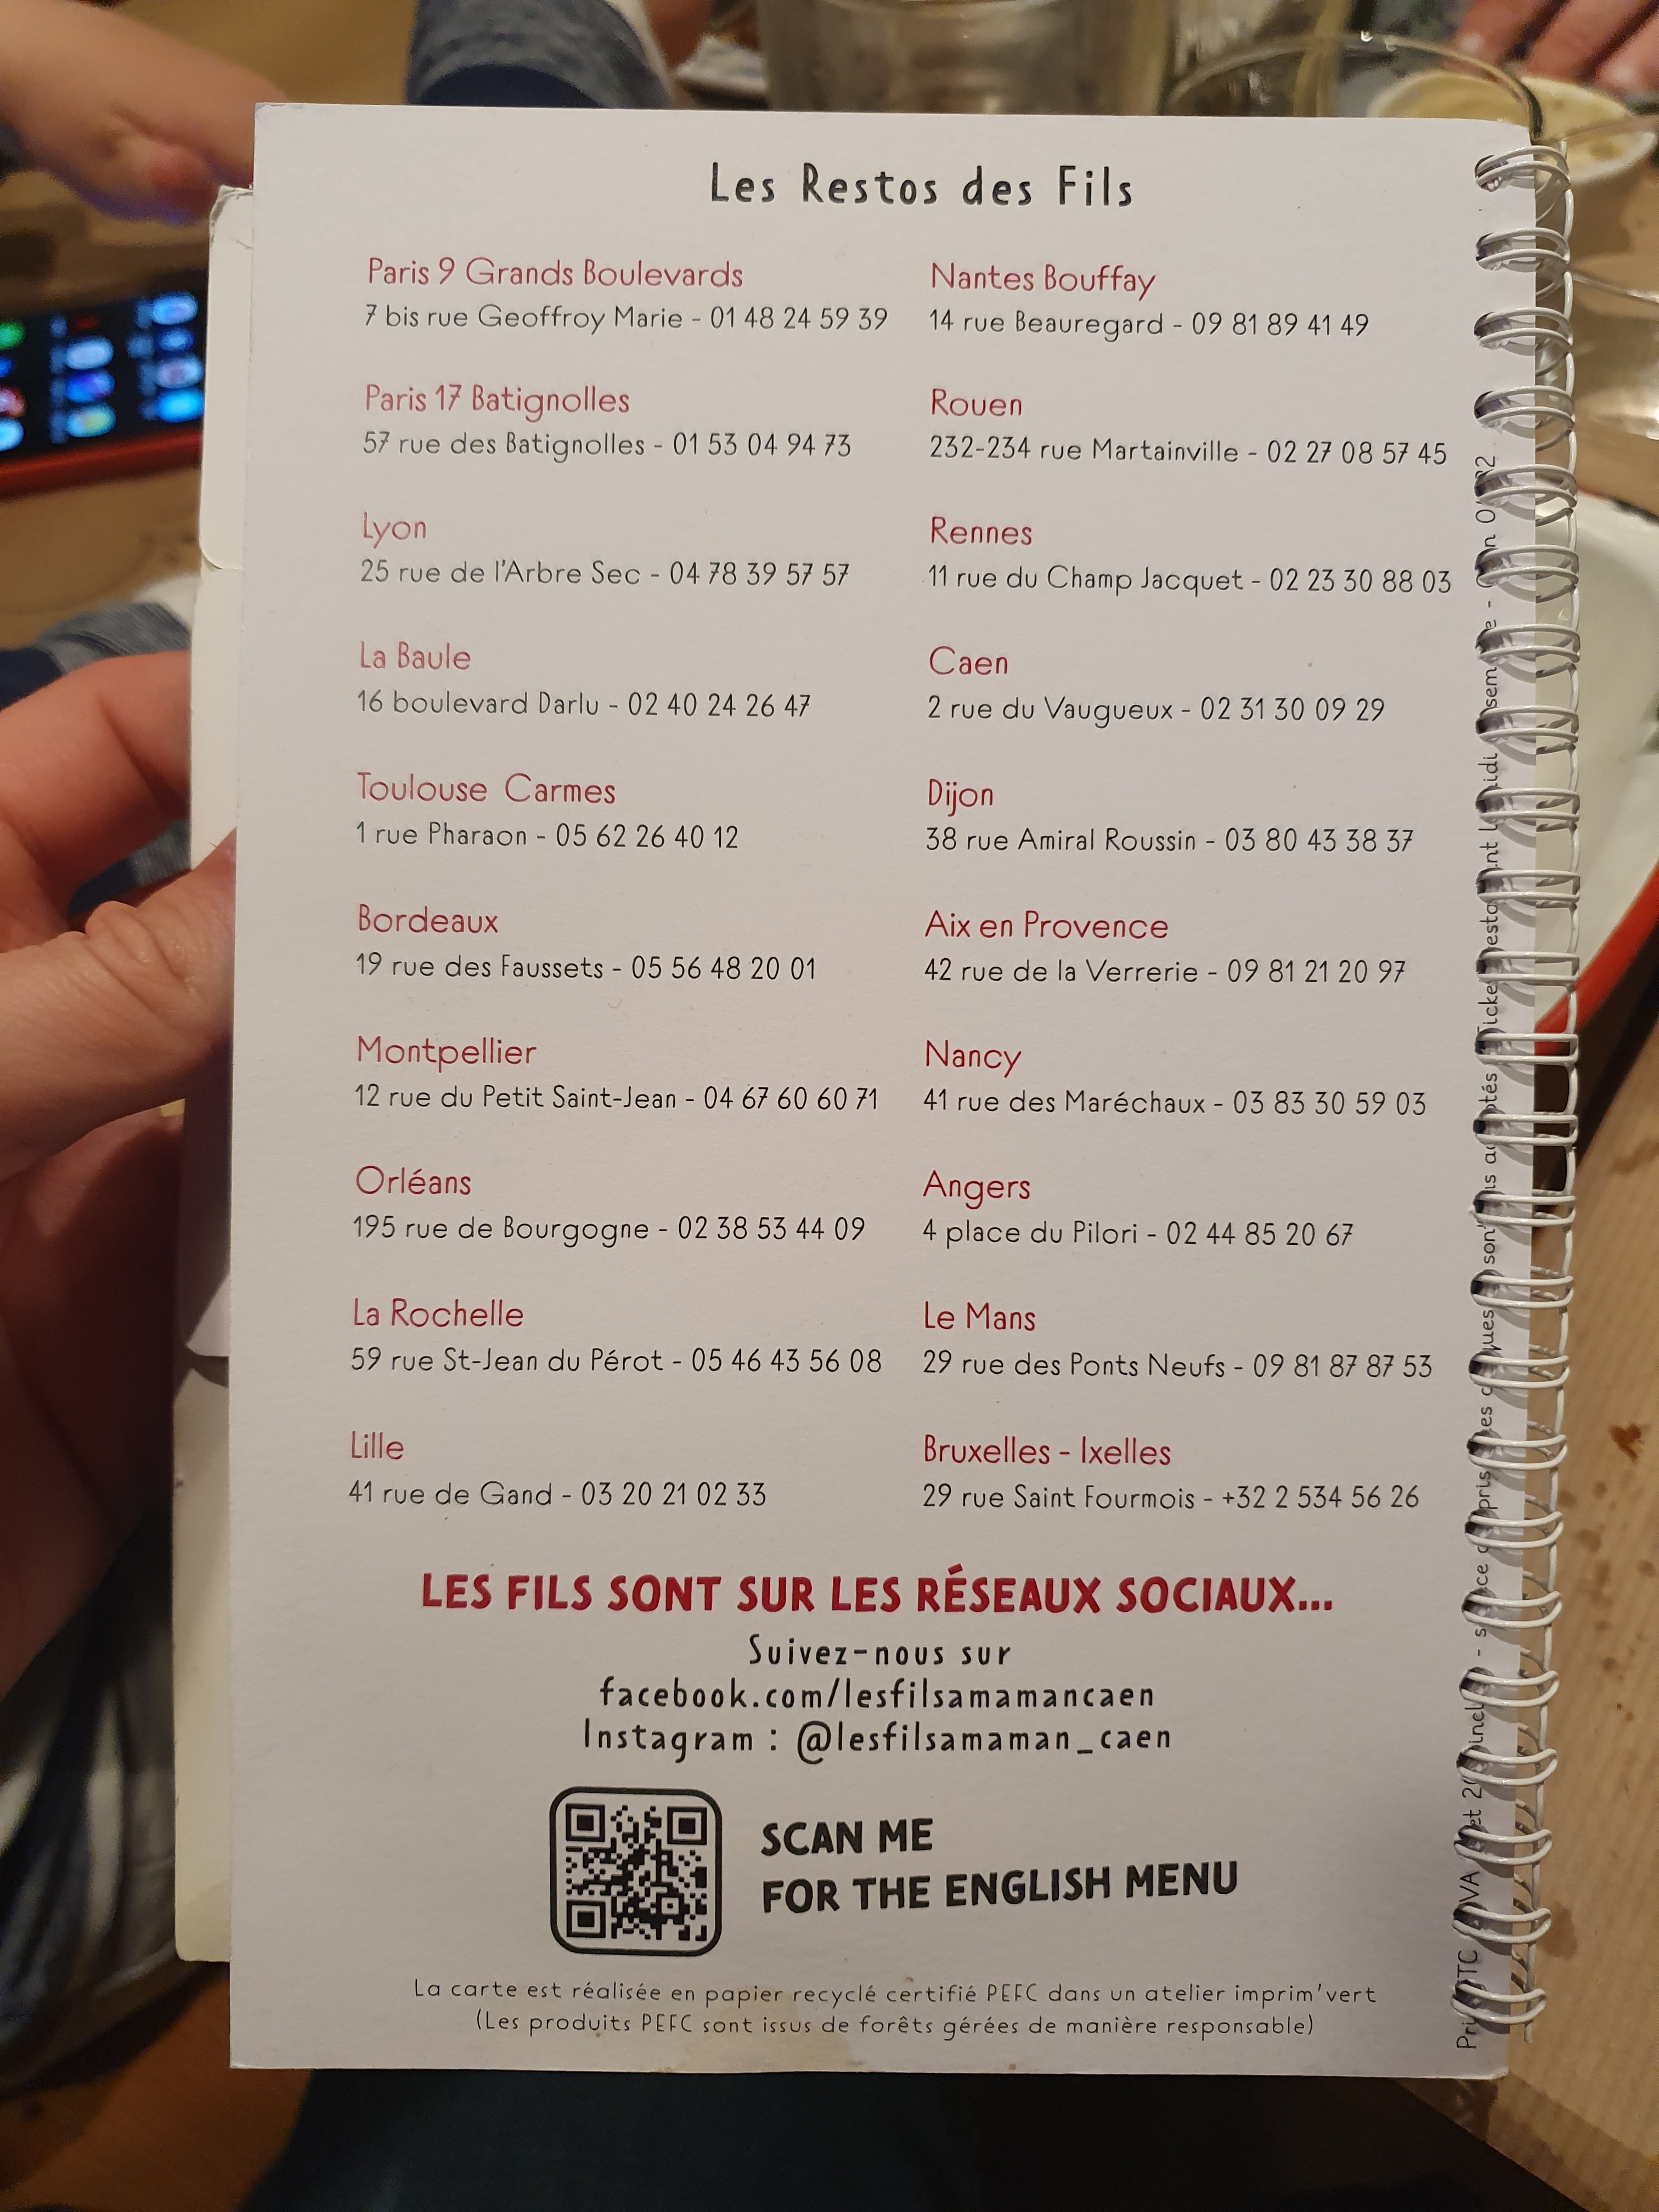 Les Restos des Fils
Paris 9 Grands Boulevards
7 bis rue Geoffroy Marie - 01 48 24 59 39
Paris 17 Batignolles
57 rue des Batignolles - 01 53 04 94 73
Lyon
25 rue de l'Arbre Sec - 04 78 39 57 57
La Baule
16 boulevard Darlu - 02 40 24 26 47
Toulouse Carmes
1 rue Pharaon - 05 62 26 40 12
Bordeaux
19 rue des Faussets - 05 56 48 20 01
Montpellier
12 rue du Petit Saint-Jean - 04 67 60 60 71
Orléans
195 rue de Bourgogne - 02 38 53 44 09
La Rochelle
59 rue St-Jean du Pérot - 05 46 43 56 08
Lille
41 rue de Gand - 03 20 21 02 33
Nantes Bouffay
14 rue Beauregard - 09 81 89 41 49
Rouen
232-234 rue Martainville - 02 27 08 57 45
Rennes
11 rue du Champ Jacquet - 02 23 30 88 03
Caen
2 rue du Vaugueux - 02 31 30 09 29
Dijon
38 rue Amiral Roussin - 03 80 43 38 37
Aix en Provence
42 rue de la Verrerie - 09 81 21 20 97
Nancy
41 rue des Maréchaux - 03 83 30 59 03
Angers
4 place du Pilori - 02 44 85 20 67
Le Mans
29 rue des Ponts Neufs - 09 81 87 87 53
Bruxelles - Ixelles
29 rue Saint Fourmois - +32 2 534 56 26
LES FILS SONT SUR LES RÉSEAUX SOCIAUX...
Suivez-nous sur
facebook.com/lesfilsamamancaen
Instagram : @lesfilsamaman_caen
SCAN ME
FOR THE ENGLISH MENU
La carte est réalisée en papier recyclé certifié PEFC dans un atelier imprim'vert
(Les produits PEFC sont issus de forêts gérées de manière responsable)